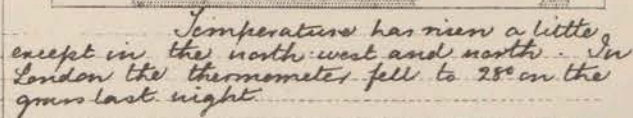 Temperature has risen a little
except in the north west and north. In
London the thermometer fell to 28° on the
grass last night.